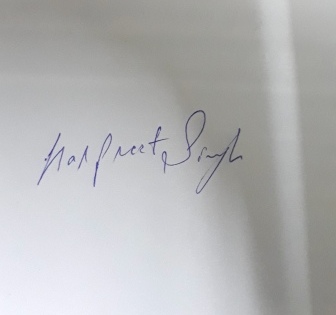 Harpreet Singh